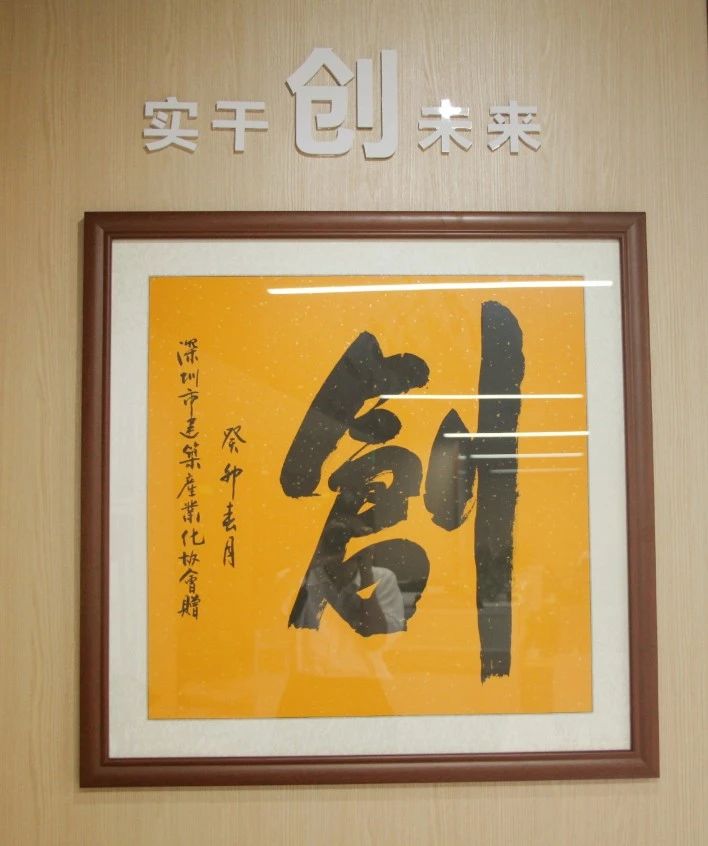 实干创未来
創
癸卯春月
深圳市建築産業化协會贈